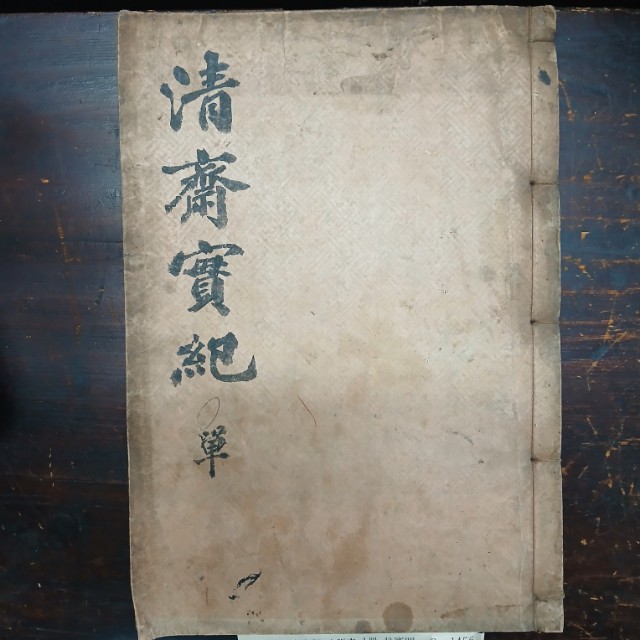 清齋實紀
單